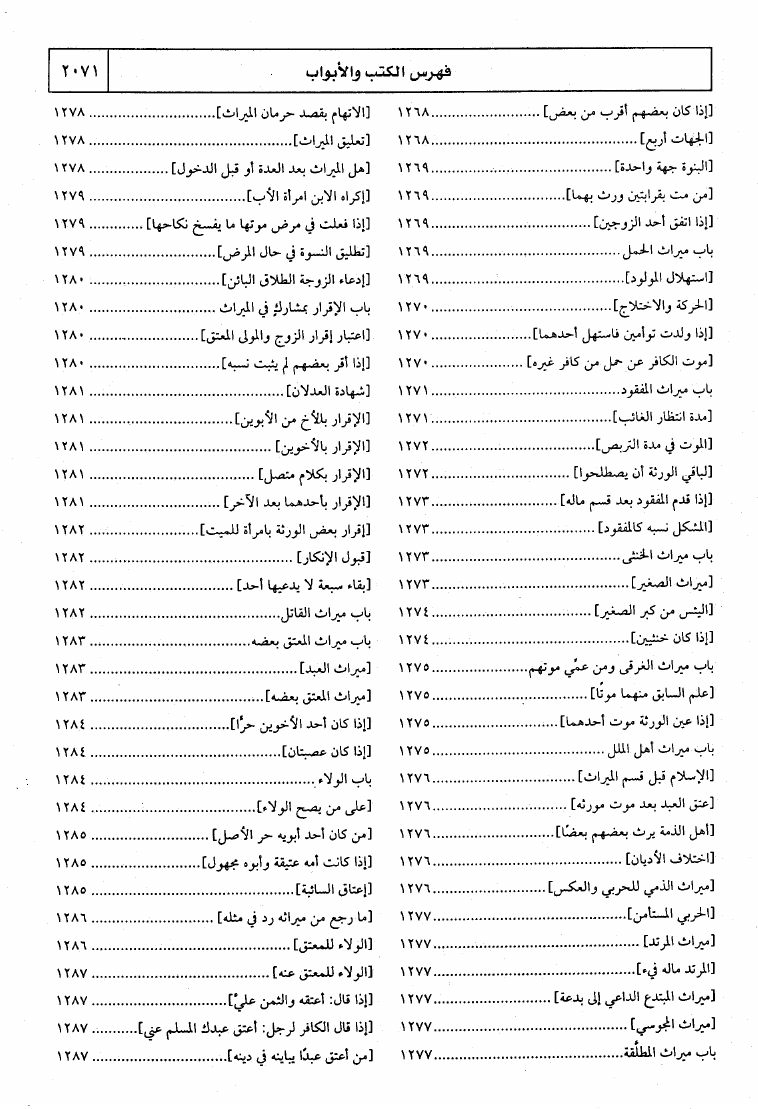 فهرس الكتب والأبواب ٢٠٧١
[إذا كان بعضهم أقرب من بعض] ١٢٦٨
[الجهات أربع] ١٢٦٨
[البنوة جهة واحدة] ١٢٦٩
[من مت بقرابتين ورث بهما] ١٢٦٩
[إذا اتفق أحد الزوجين] ١٢٦٩
باب ميراث الحمل ١٢٦٩
[استهلال المولود] ١٢٦٩
[الحركة والاختلاج] ١٢٧٠
[إذا ولدت توأمين فاستهل أحدهما] ١٢٧٠
[موت الكافر عن حمل من كافر غيره] ١٢٧٠
باب ميراث المفقود ١٢٧١
[مدة انتظار الغائب] ١٢٧١
[الموت في مدة التربص] ١٢٧٢
[لباقي الورثة أن يصطلحوا] ١٢٧٢
[إذا قدم المفقود بعد قسم ماله] ١٢٧٣
[المشكل نسبه كالمفقود] ١٢٧٣
باب ميراث الخنثى ١٢٧٣
[ميراث الصغير] ١٢٧٣
[اليئس من كبر الصغير] ١٢٧٤
[إذا كان خنثيين] ١٢٧٤
باب ميراث الغرقى ومن عمّي موتهم ١٢٧٥
[علم السابق منهما موتًا] ١٢٧٥
[إذا عين الورثة موت أحدهما] ١٢٧٥
باب ميراث أهل الملل ١٢٧٥
[الإسلام قبل قسم الميراث] ١٢٧٦
[عتق العبد بعد موت مورثه] ١٢٧٦
[أهل الذمة يرث بعضهم بعضًا] ١٢٧٦
[اختلاف الأديان] ١٢٧٦
[ميراث الذمي للحربي والعكس] ١٢٧٦
[الحربي المستأمن] ١٢٧٧
[ميراث المرتد] ١٢٧٧
[المرتد ماله فيء] ١٢٧٧
[ميراث المبتدع الداعي إلى بدعة] ١٢٧٧
[ميراث المجوسي] ١٢٧٧
باب ميراث المطلّقة ١٢٧٧
[الاتهام بقصد حرمان الميراث] ١٢٧٨
[تعليق الميراث] ١٢٧٨
[هل الميراث بعد العدة أو قبل الدخول] ١٢٧٨
[إكراه الابن امرأة الأب] ١٢٧٩
[إذا فعلت في مرض موتها ما يفسخ نكاحها] ١٢٧٩
[تطليق النسوة في حال المرض] ١٢٧٩
[إدعاء الزوجة الطلاق البائن] ١٢٨٠
باب الإقرار بمشاركٍ في الميراث ١٢٨٠
[اعتبار إقرار الزوج والمولى المعتق] ١٢٨٠
[إذا أقر بعضهم لم يثبت نسبه] ١٢٨٠
[شهادة العدلان] ١٢٨١
[الإقرار بالأخ من الأبوين] ١٢٨١
[الإقرار بالأخوين] ١٢٨١
[الإقرار بكلام متصل] ١٢٨١
[الإقرار بأحدهما بعد الآخر] ١٢٨١
[إقرار بعض الورثة بامرأة للميت] ١٢٨٢
[قبول الإنكار] ١٢٨٢
[بقاء سبعة لا يدعيها أحد] ١٢٨٢
باب ميراث القاتل ١٢٨٢
باب ميراث المعتق بعضه ١٢٨٣
[ميراث العبد] ١٢٨٣
[ميراث المعتق بعضه] ١٢٨٣
[إذا كان أحد الأخوين حرًا] ١٢٨٤
[إذا كان عصبتان] ١٢٨٤
باب الولاء ١٢٨٤
[على من يصح الولاء] ١٢٨٤
[من كان أحد أبويه حر الأصل] ١٢٨٥
[إذا كانت أمه عتيقة وأبوه مجهول] ١٢٨٥
[إعتاق السائبة] ١٢٨٥
[ما رجع من ميراثه رد في مثله] ١٢٨٦
[الولاء للمعتق] ١٢٨٦
[الولاء للمعتق عنه] ١٢٨٧
[إذا قال: أعتقه والثمن عليّ] ١٢٨٧
[إذا قال الكافر لرجل: أعتق عبدك المسلم عني] ١٢٨٧
[من أعتق عبدًا يباينه في دينه] ١٢٨٧